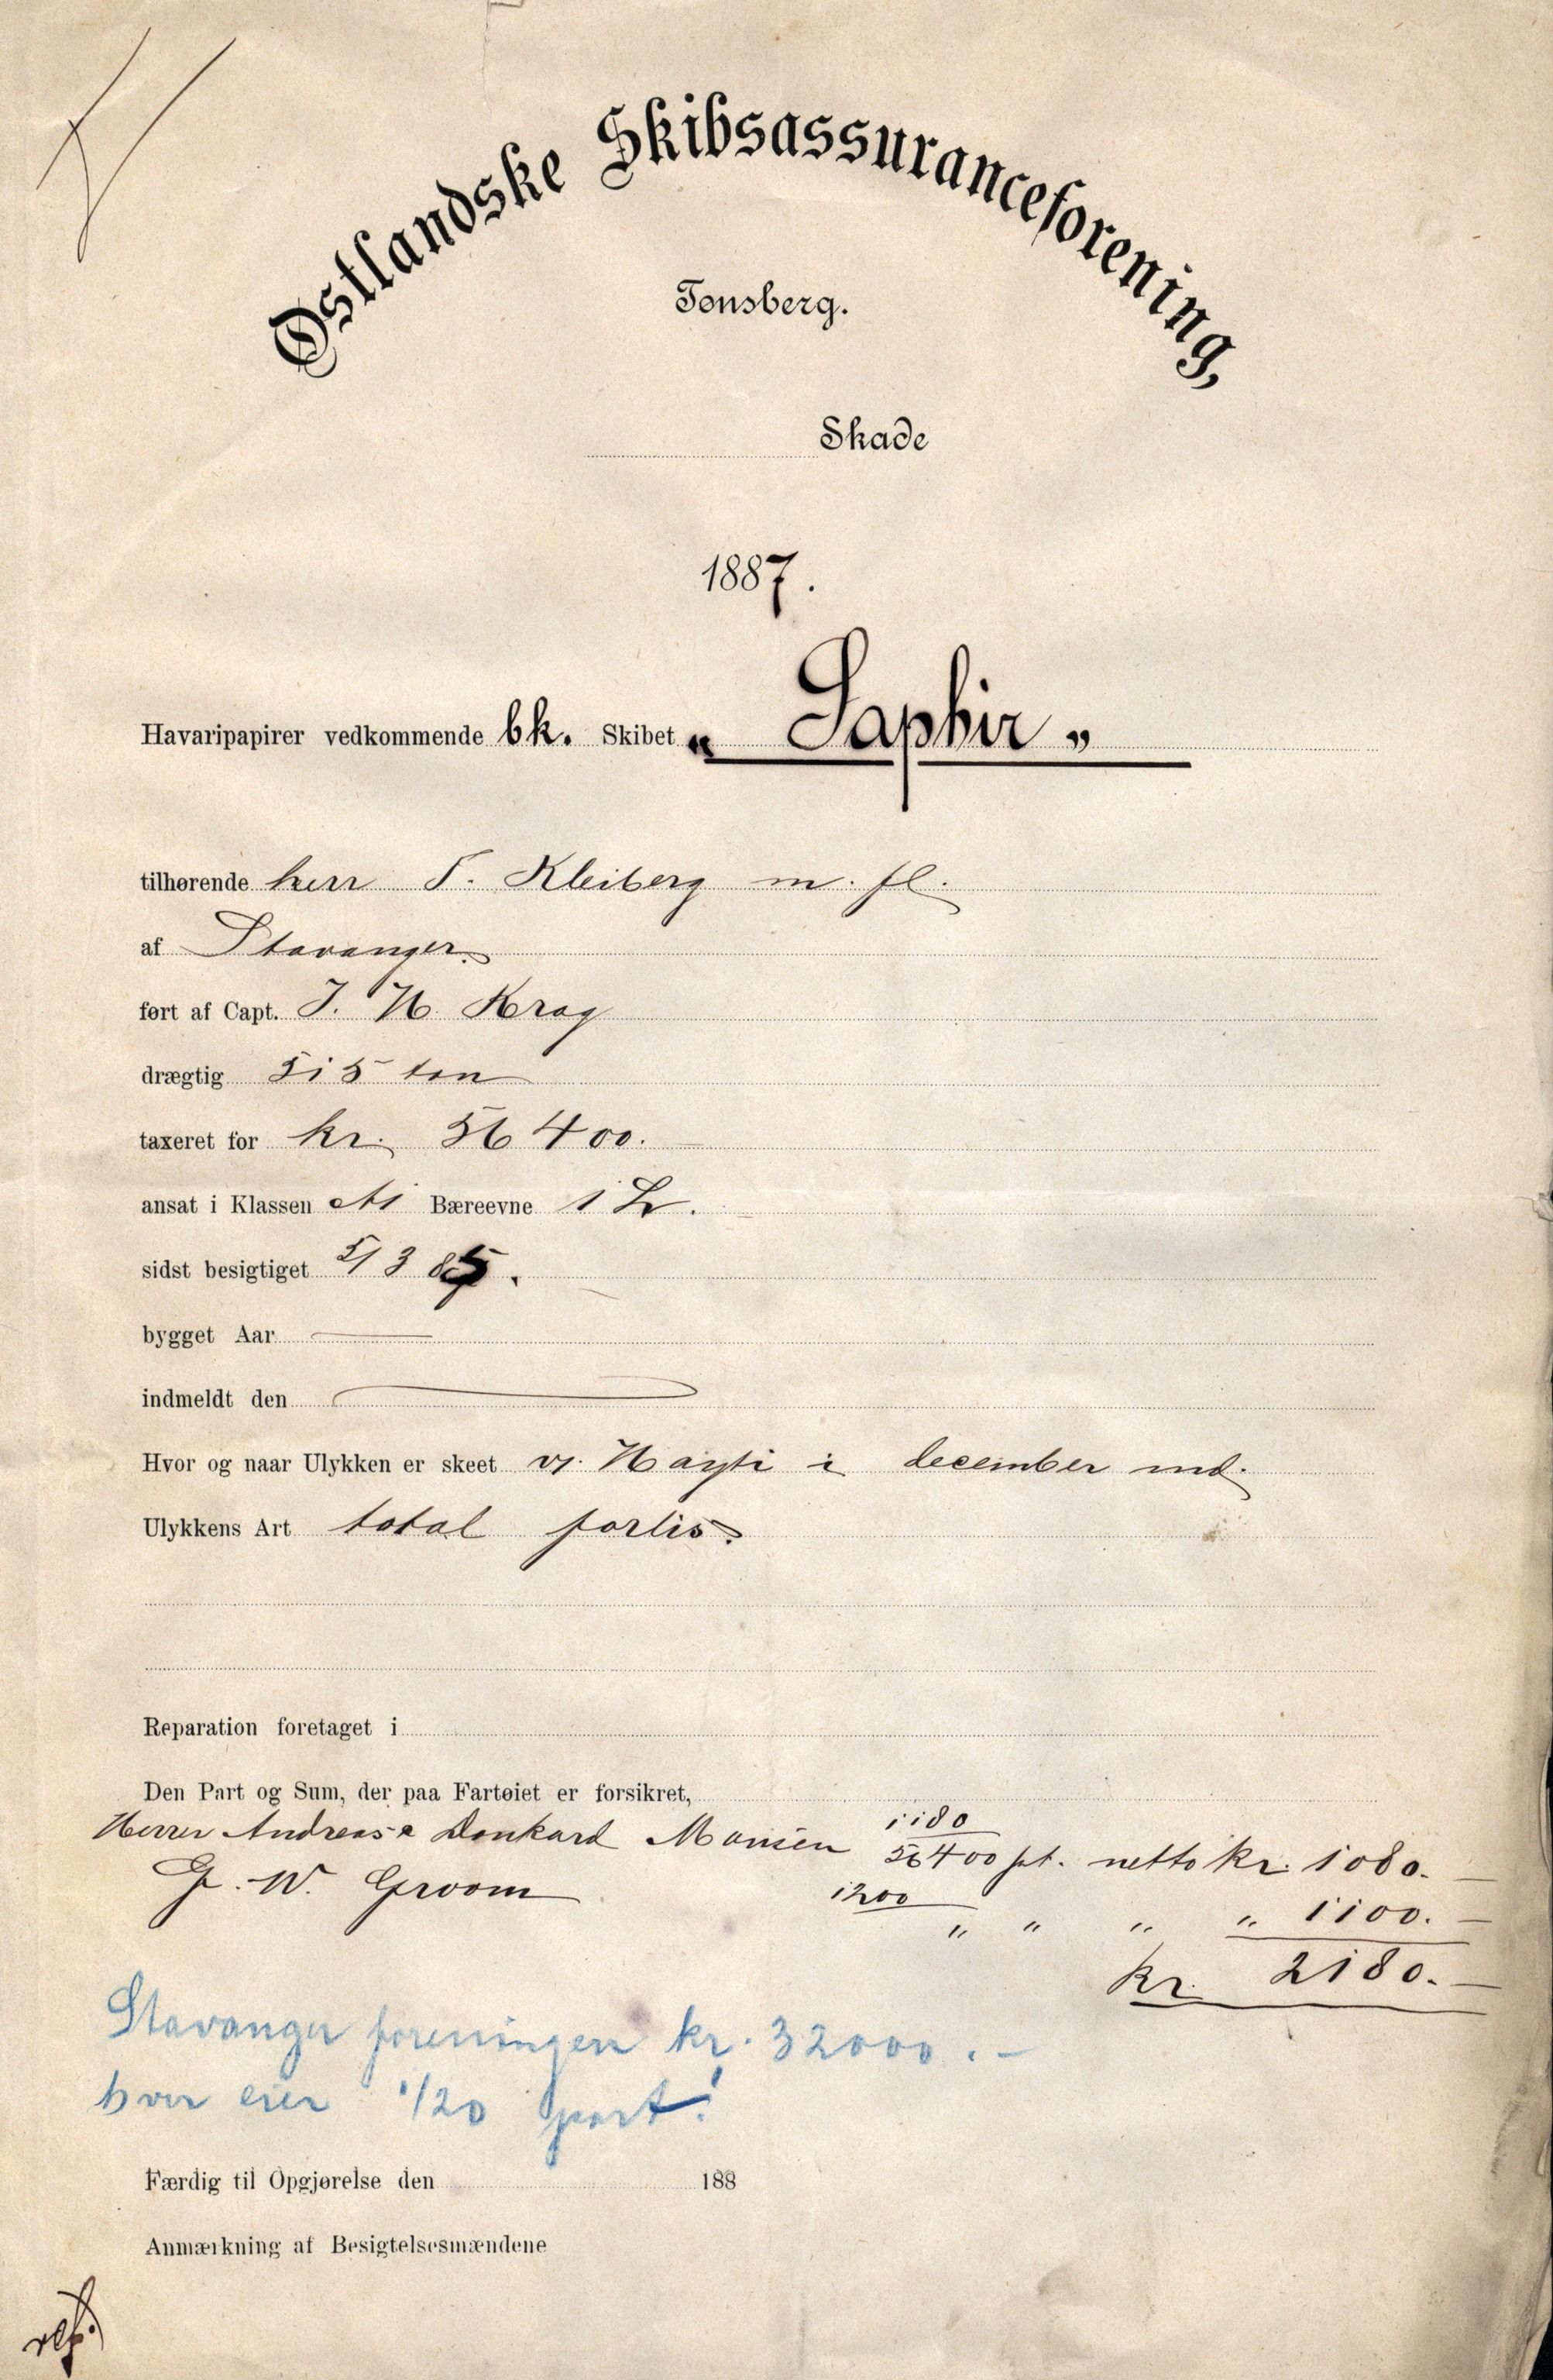 Østlandske Skibsassuranceforening,
Tønsberg.
Skade
1887.
Havaripapirer vedkommende bk. Skibet "Saphir"
tilhørende herr F. Kleiberg m. fl.
af Stavanger.
ført af Capt. J. H. Krag
drægtig 515 ton
taxeret for kr. 56400.—
ansat i Klassen A1 Bæreevne 1 L.
sidst besigtiget 5/3 85.
bygget Aar —
indmeldt den —
Hvor og naar Ulykken er skeet v. Hayti i december md.
Ulykkens Art total forlis.
Reparation foretaget i
Den Part og Sum, der paa Fartøiet er forsikret,
Herrer Andreas & Monsen 1180/56400 pt. netto kr. 1080.—
G. W. Groom 1200/" " " " 1100.—
kr. 2180.—
Stavanger foreningen kr. 32000.—
hver eier 1/20 part!
Færdig til Opgjørelse den 188
Anmærkning af Besigtelsesmændene